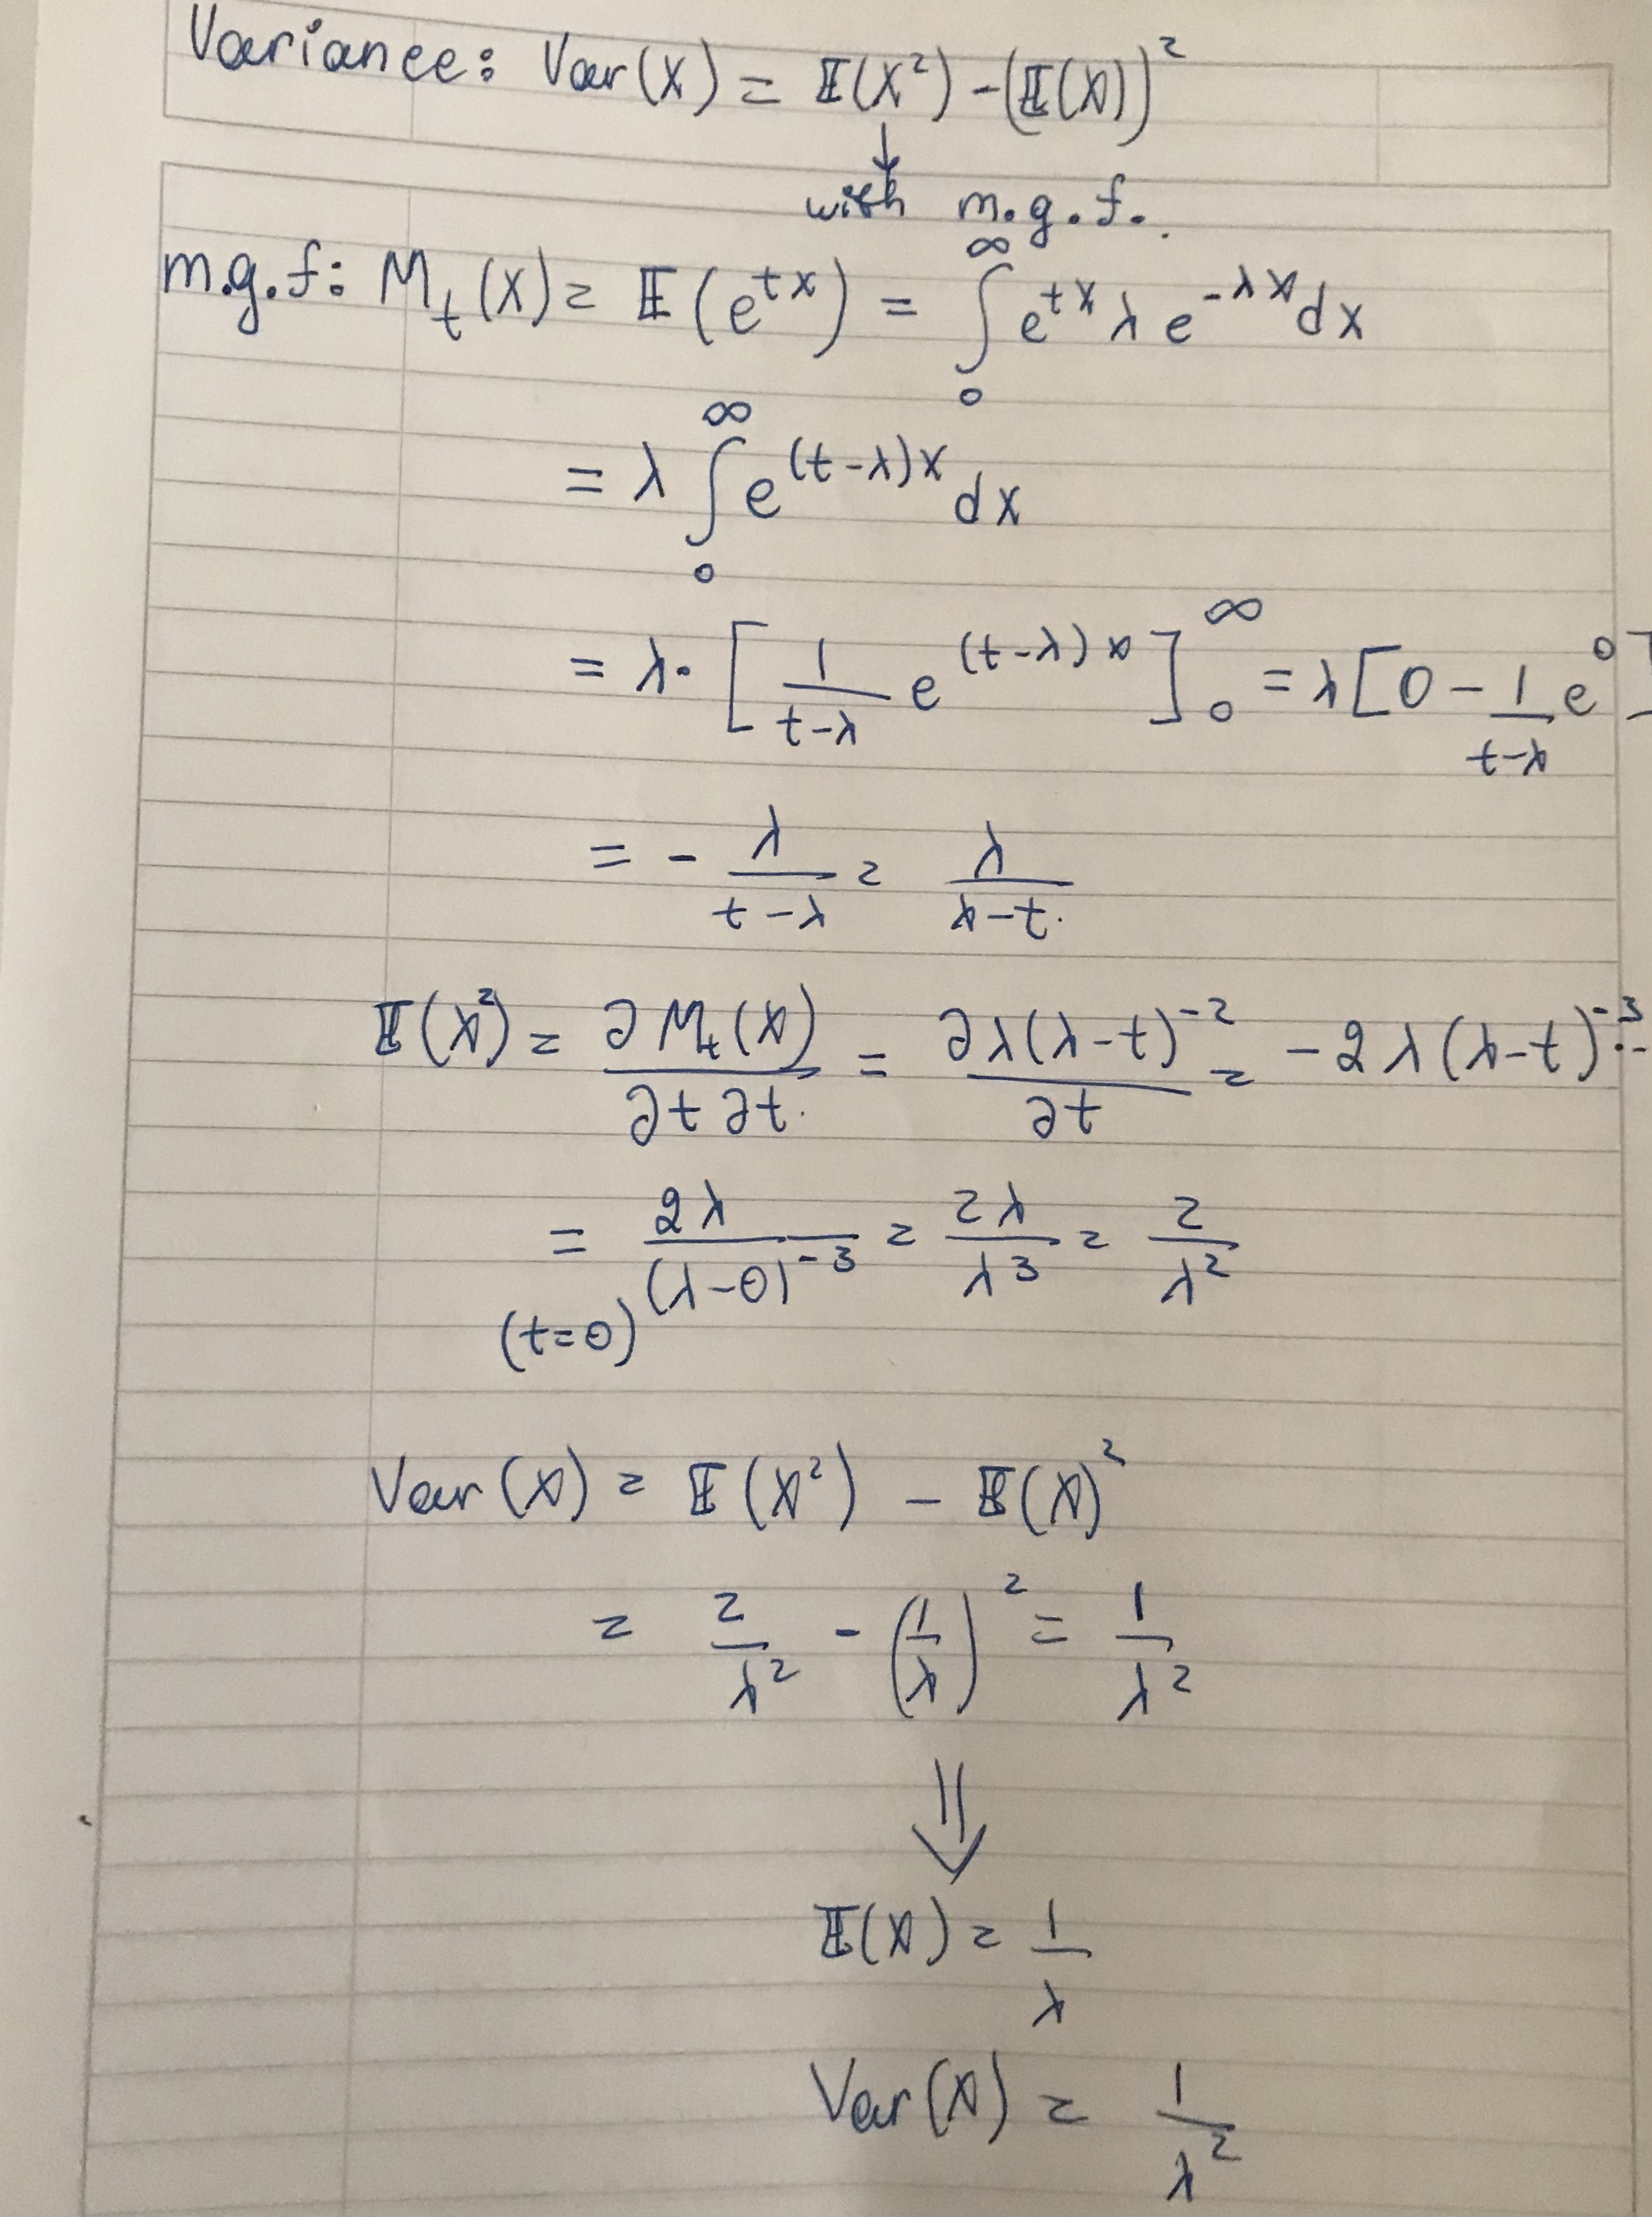 Variance: Var(X) = 𝔼(X²) - (𝔼(X))²
↓
with m.g.f.
m.g.f: M_t(X) = 𝔼(e^{tx}) = ∫_0^∞ e^{tx} λ e^{-λx} dx
= λ ∫_0^∞ e^{(t-λ)x} dx
= λ · [1/(t-λ) e^{(t-λ)x}]_0^∞ = λ[0 - 1/(t-λ) e^0]
= - λ/(t-λ) = λ/(λ-t)
𝔼(X²) = ∂M_t(X)/∂t∂t = ∂λ(λ-t)^{-2}/∂t = -2λ(λ-t)^{-3} · -
= 2λ/(λ-0)^{-3} = 2λ/λ³ = 2/λ²
(t=0)
Var(X) = 𝔼(X²) - 𝔼(X)²
= 2/λ² - (1/λ)² = 1/λ²
⇓
𝔼(X) = 1/λ
Var(X) = 1/λ²